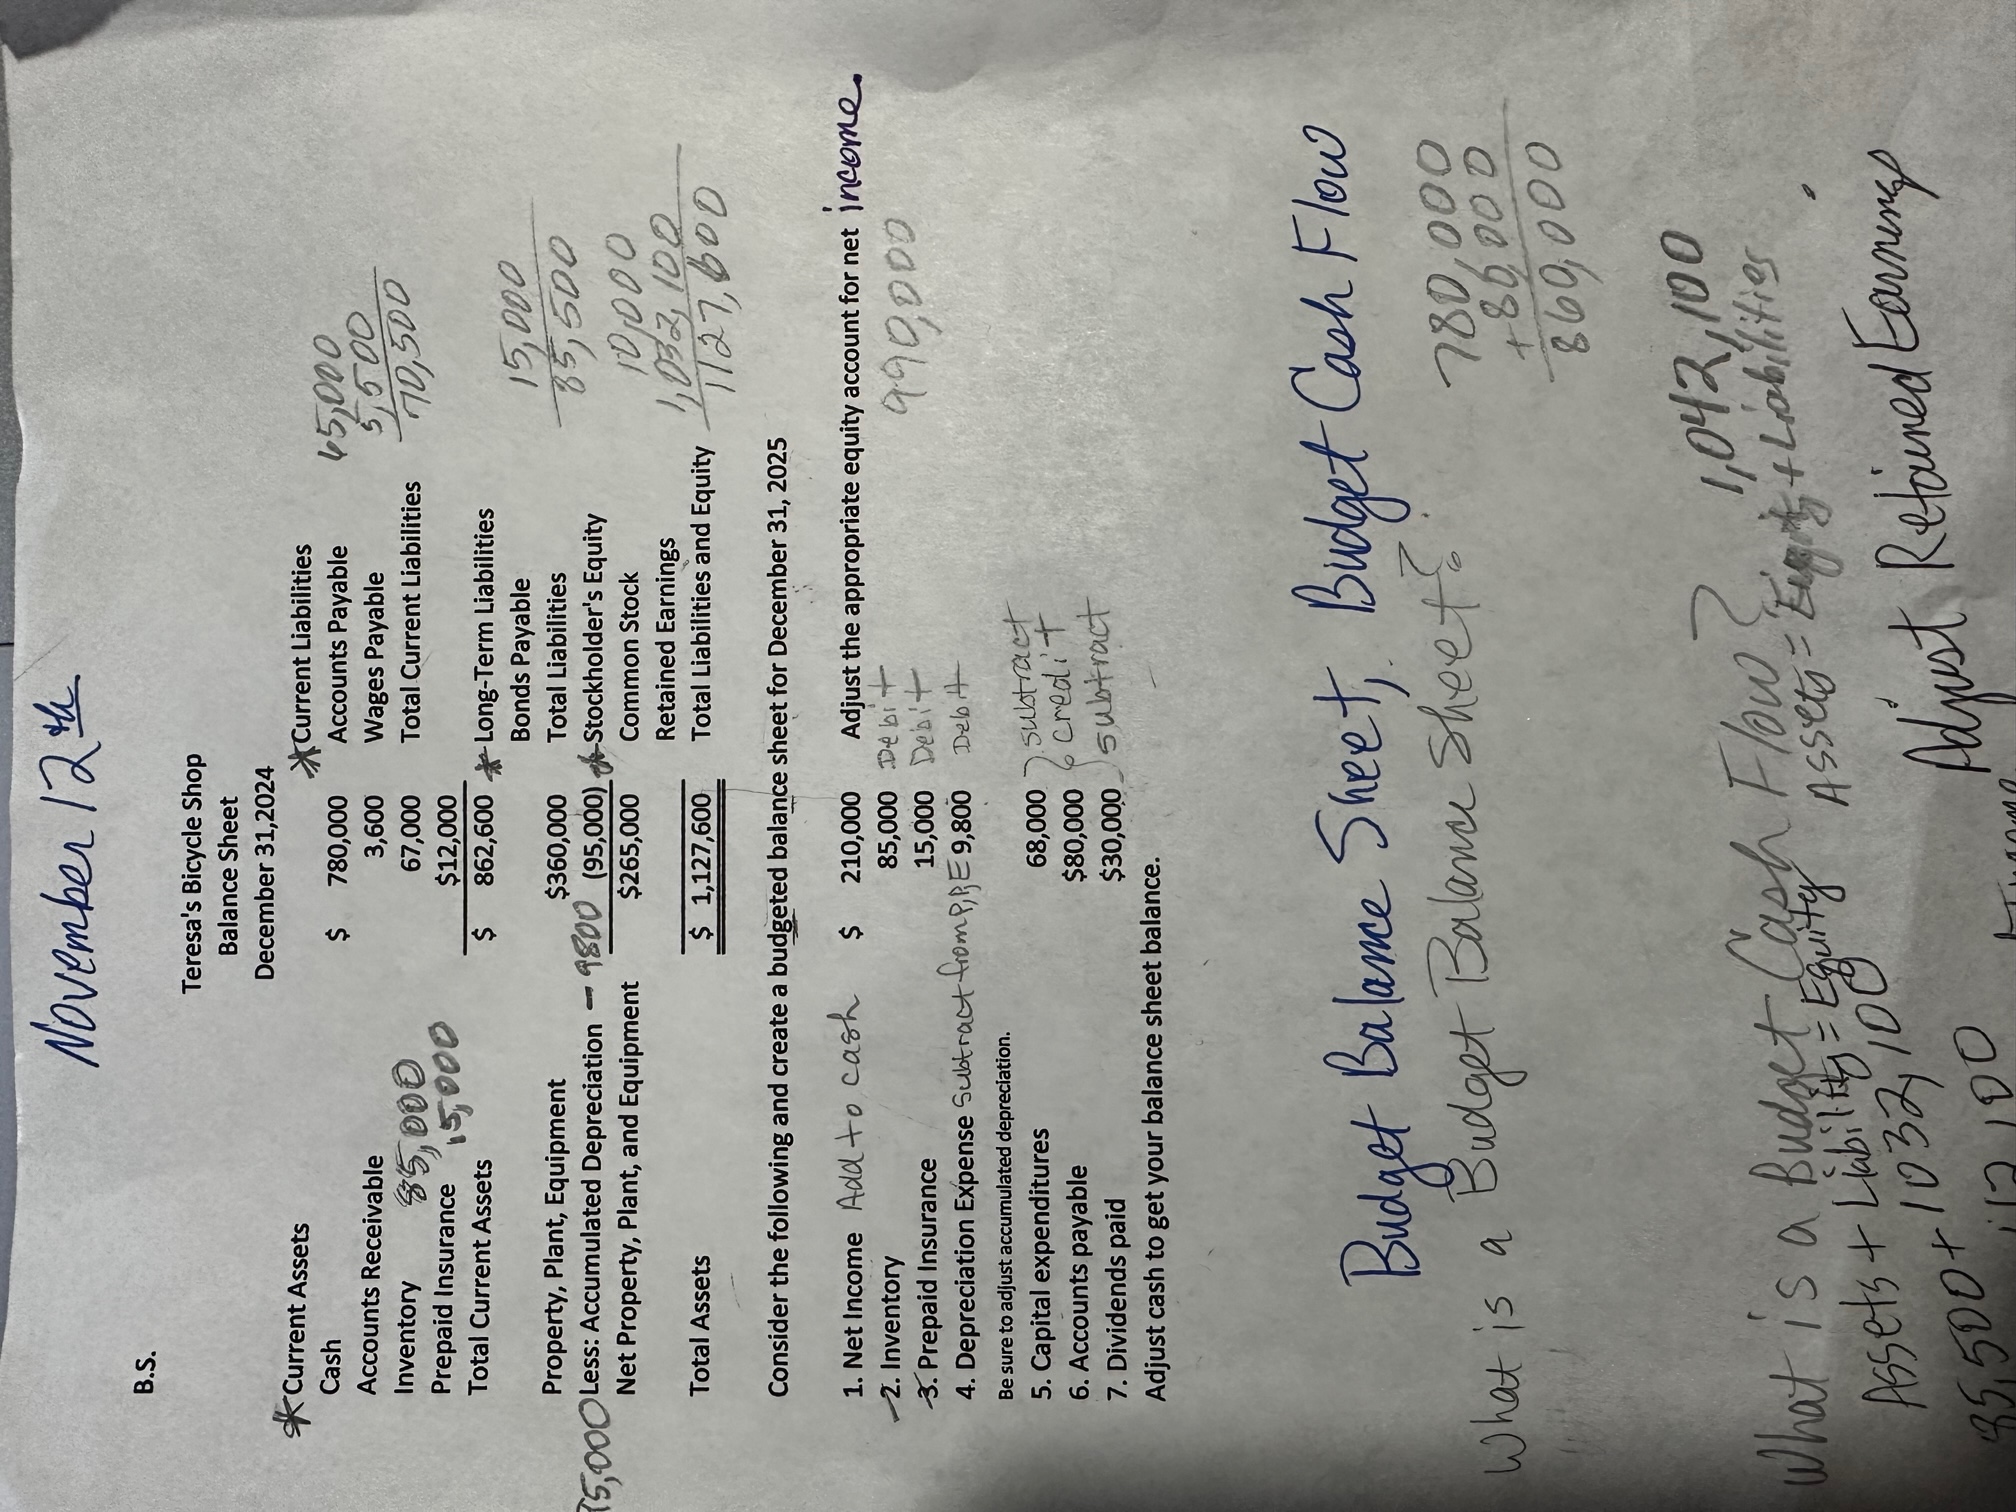 November 12th
B.S.
Teresa's Bicycle Shop
Balance Sheet
December 31,2024
*Current Assets *Current Liabilities
Cash $ 780,000 Accounts Payable 45,000
Accounts Receivable 3,600 Wages Payable 5,500
Inventory 85,000 67,000 Total Current Liabilities 70,500
Prepaid Insurance 15,000 $12,000
Total Current Assets $ 862,600 * Long-Term Liabilities
Bonds Payable 15,000
Property, Plant, Equipment $360,000 Total Liabilities 85,500
75,000 Less: Accumulated Depreciation - 9800 (95,000) * Stockholder's Equity
Net Property, Plant, and Equipment $265,000 Common Stock 10,000
Retained Earnings 1,032,100
Total Assets $ 1,127,600 Total Liabilities and Equity 1127,600
Consider the following and create a budgeted balance sheet for December 31, 2025
1. Net Income Add to cash $ 210,000 Adjust the appropriate equity account for net income.
-2. Inventory 85,000 Debit 990,000
-3. Prepaid Insurance 15,000 Debit
4. Depreciation Expense Subtract from P,P,E 9,800 Debit
Be sure to adjust accumulated depreciation.
5. Capital expenditures 68,000 subtract
6. Accounts payable $80,000 credit
7. Dividends paid $30,000 subtract
Adjust cash to get your balance sheet balance.
Budget Balance Sheet, Budget Cash Flow
What is a Budget Balance Sheet?
780,000
+ 86,000
869,000
What is a Budget Cash Flow? 1,042,100
Assets + Liability = Equity Assets = + Liabilities
1032,100
Adjust Retained Earnings